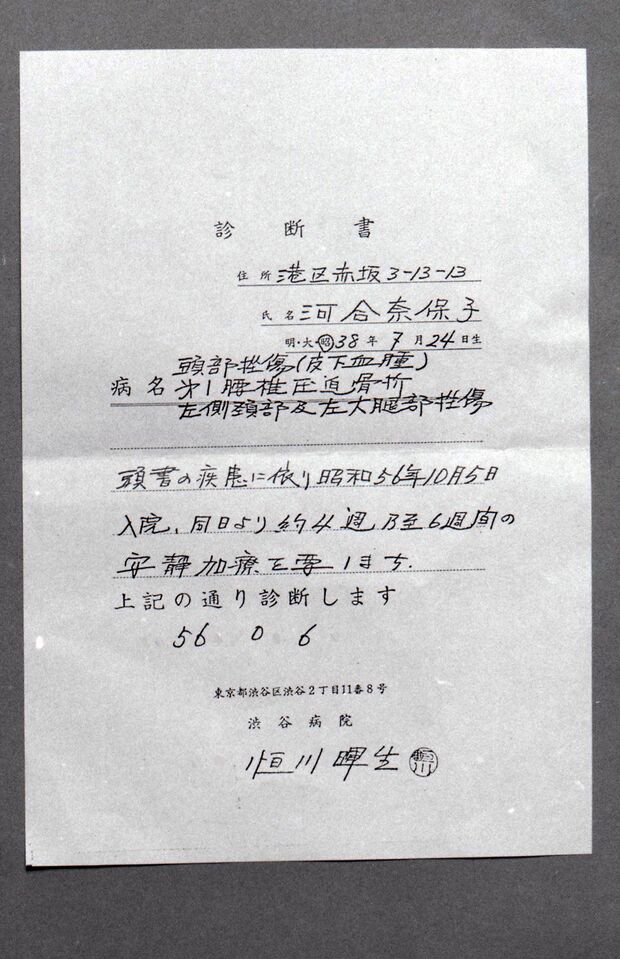 診断書
住所 港区赤坂3-13-13
氏名 河合奈保子
明・大・昭 38年7月24日生
頭部挫傷(皮下血腫)
病名 第1腰椎圧迫骨折
左側頚部及左大腿部挫傷
頭書の疾患に依り昭和56年10月5日
入院、同日より約4週乃至6週間の
安静加療を要します.
上記の通り診断します
56 0 6
東京都渋谷区渋谷2丁目11番8号
渋谷病院
恒川